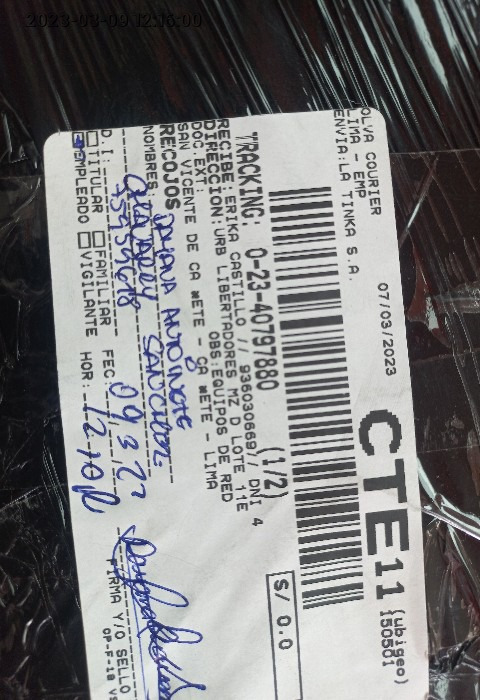 2023-03-09 12:16:00
OLVA COURIER
LIMA - EMP
ENVIA:LA TINKA S.A.
07/03/2023
CTE11
(ubigeo)
150501
TRACKING: 0-23-40797880 (1/2)
RECIBE:ERIKA CASTILLO // 936030669// DNI 4
DIRECCION:URB LIBERTADORES MZ D LOTE 11E
DOC.EXT: OBS:EQUIPOS DE RED
SAN VICENTE DE CAÑETE - CAÑETE - LIMA
S/ 0.0
RECOJOS
NOMBRES:
D.I:
FEC: 09/3/23
TITULAR FAMILIAR
EMPLEADO VIGILANTE HOR: 12:10
FIRMA Y/O SELLO
OP-F-18